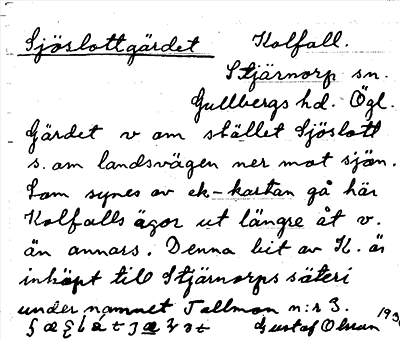 Sjöslottgärdet Kolfall.
Stjärnorp sn.
Gullbergs hd. Ögl.
Gärdet v om stället Sjöslott
s. om landsvägen ner mot sjön.
Som synes av ek-kartan gå här
Kolfalls ägor ut längre åt v.
än annars. Denna bit av K. är
inköpt till Stjärnorps säteri
under namnet Tallmon n:r 3.
Gustaf Olsson 193